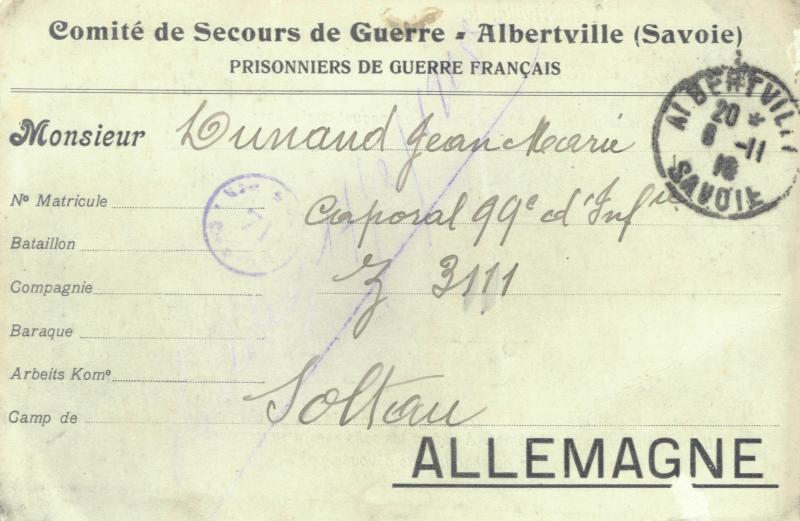 Comité de Secours de Guerre - Albertville (Savoie)
PRISONNIERS DE GUERRE FRANÇAIS
Monsieur Dunand Jean Marie
No Matricule
caporal 99e d'Infie
Bataillon
Compagnie
Z 3111
Baraque
Arbeits Komo
Camp de Soltau
ALLEMAGNE
ALBERTVILLE
20 *
6 -11
16
SAVOIE